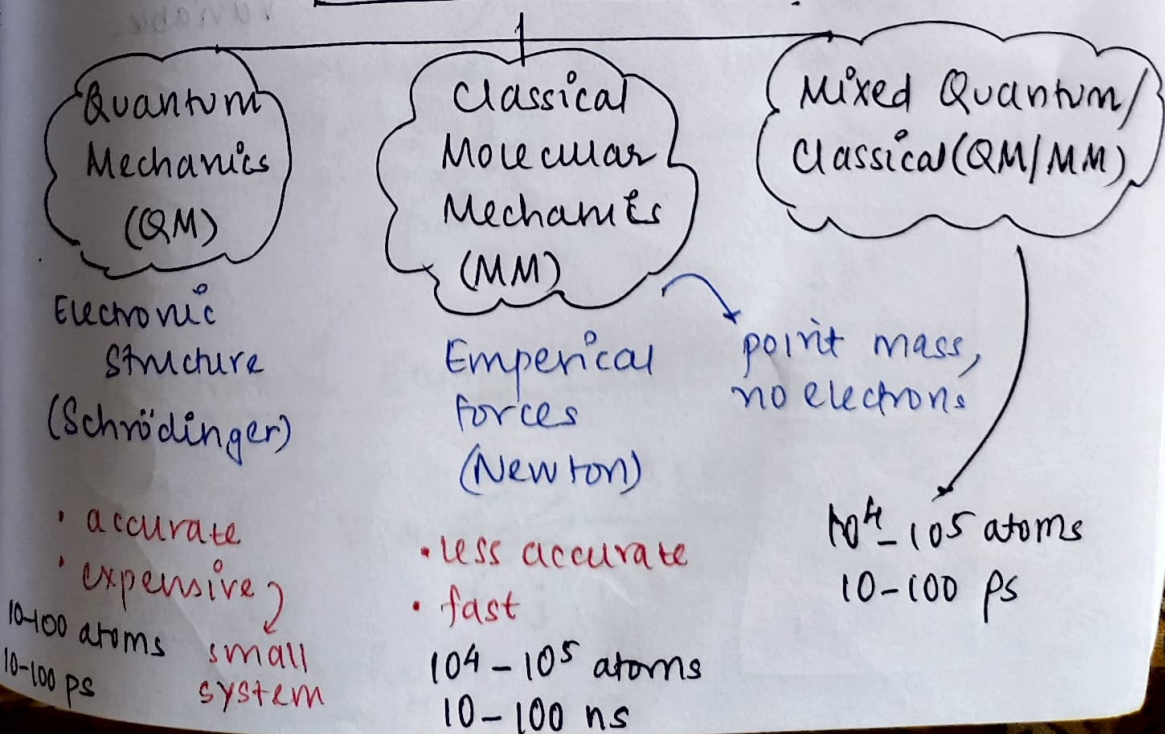 Quantum
Mechanics
(QM)
Electronic
Structure
(Schrödinger)
• accurate
• expensive
small
system
10-100 atoms
10-100 ps
Classical
Molecular
Mechanics
(MM)
point mass,
no electrons
Emperical
Forces
(Newton)
• less accurate
• fast
10⁴ – 10⁵ atoms
10 – 100 ns
Mixed Quantum/
Classical (QM/MM)
10⁴ – 10⁵ atoms
10 – 100 ps